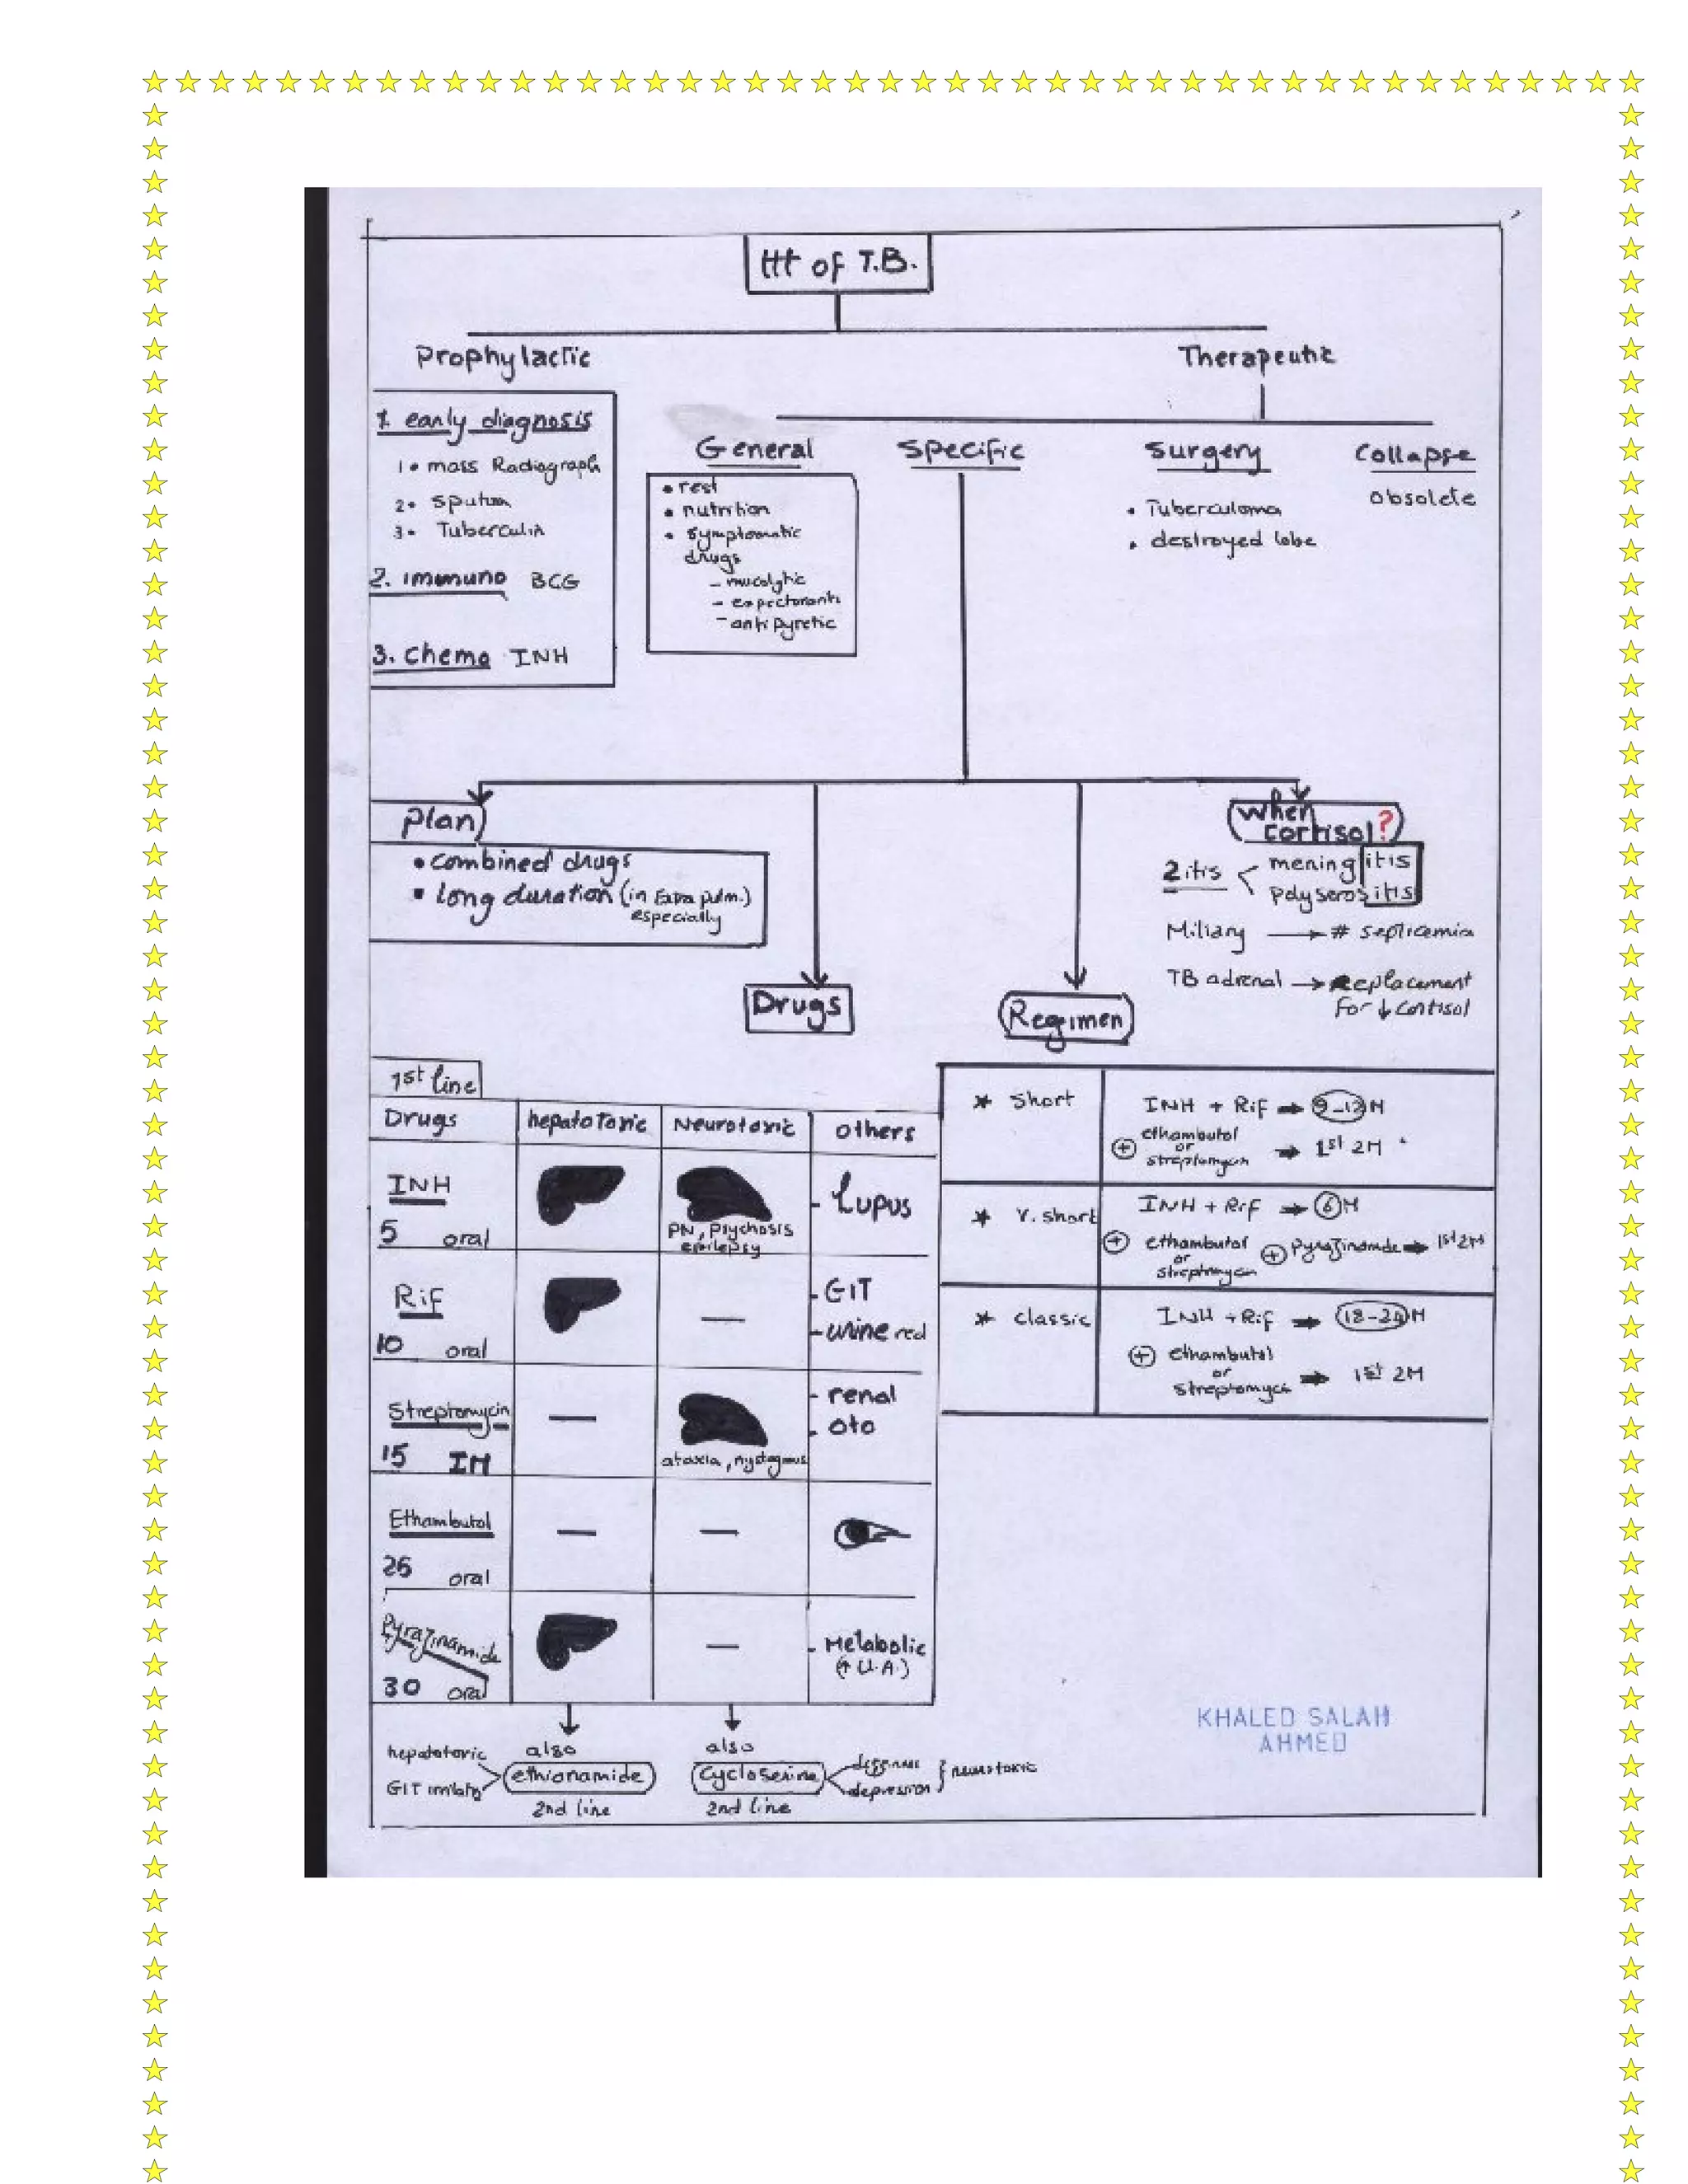 ttt of T.B.
Prophylactic
Therapeutic
1. early diagnosis
1• mass Radiograph
2• Sputum
3• Tuberculin
2. immuno BCG
3. chemo INH
General
• rest
• nutrition
• symptomatic
drugs
- mucolytic
- expectorants
- antipyretic
Specific
Surgery
• Tuberculoma
• destroyed lobe
Collapse
obsolete
plan
• combined drugs
• long duration (in Extra pulm.)
especially
When
cortisol?
2 itis
meningitis
polyserositis
Miliary → # septicemia
TB adrenal → Replacement
For ↓ Cortisol
Drugs
Regimen
1st line
Drugs hepatotoxic Neurotoxic others
INH
5 oral
PN, psychosis
epilepsy
- Lupus
Rif
10 oral
—
- GIT
- urine red
Streptomycin
15 IM
—
ataxia, nystagmus
- renal
- oto
Ethambutol
25 oral
— —
Pyrazinamide
30 oral
—
- Metabolic
(↑ U.A.)
hepatotoxic
GIT irritation
also
ethionamide
2nd line
also
cycloserine
2nd line
depression
neurotoxic
* Short
INH + Rif → 9-12 M
+ ethambutol
or
streptomycin
→ 1st 2M
* V. short
INH + Rif → 6 M
+ ethambutol
or
streptomycin
+ pyrazinamide → 1st 2M
* classic
INH + Rif → 18-24 M
+ ethambutol
or
streptomycin
→ 1st 2M
KHALED SALAH
AHMED